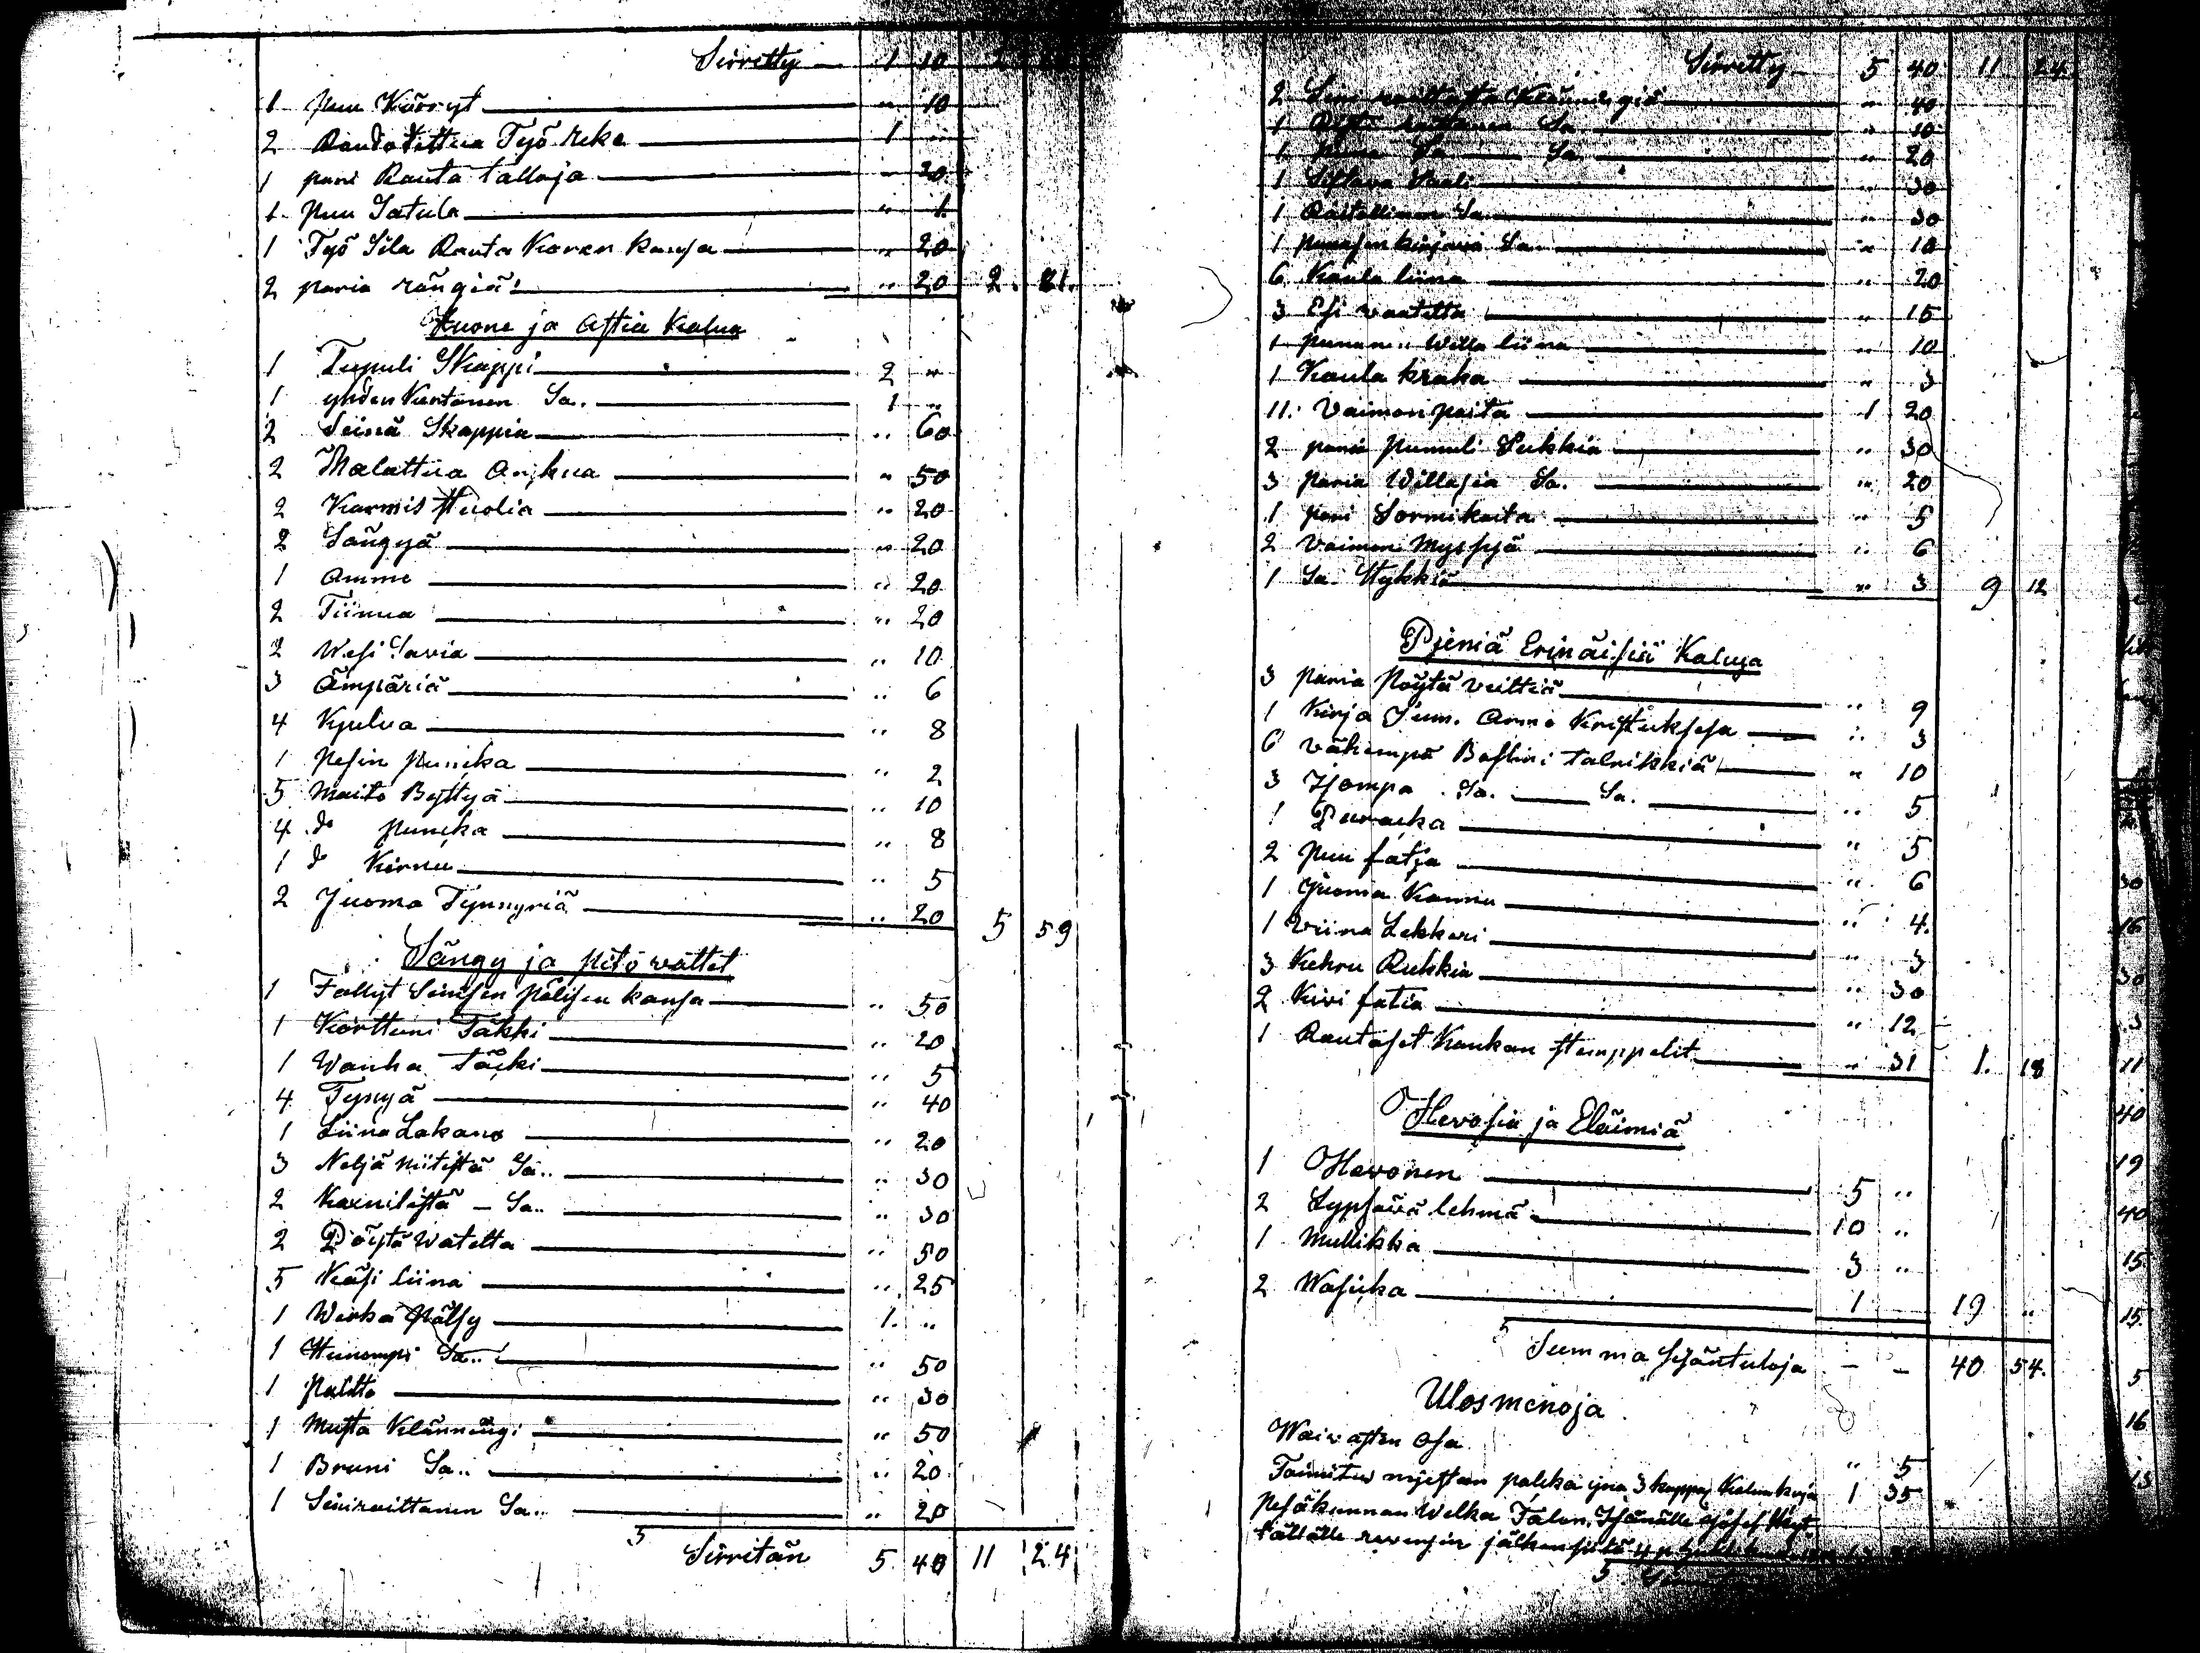 Siirretty 1 10 2
1 puu Kärryt " 10
2 Raudotettua Työ reke 1 "
1 pari Rauta talloja " 30
1 puu Satula " 1
1 Työ Sila Rauta Koren kansa " 20
2 paria rängiä " 20 2. 81.
Huone ja Astia Kalua
1 Tupuli Skappi 2 "
1 yhden Kertanen Sa. 1 "
2 Seinä Skappia " 60
2 Malattua Arjkua " 50
2 Karmis stuolia " 20
2 Sängyä " 20
1 Amme " 20
2 Tiinua " 20
2 Wesi Savia " 10
3 Ämpäriä " 6
4 Kyulua " 8
1 pesin punkka " 2
5 Maito Byttyä " 10
4 do punkka " 8
1 do Kirnu " 5
2 Juoma Tynnyriä " 20 5 59
Sängy ja pito vättet
1 Fällyt Sinisen pälisen kansa " 50
1 Korttuni Täkki " 20
1 Wanha täcki " 5
4 Tynyä " 40
1 Liina Lakana " 20
3 Neljä niitistä Sa.. " 30
2 Karnilistä – Sa.. " 30
2 Pöytä Watetta " 50
5 Käsi liina " 25
1 Werka pälsy 1. "
1 Huonompi Sa.. " 50
1 paltto " 30
1 Musta Klänningi " 50
1 Bruni Sa.. " 20
1 Siniraittanen Sa.. " 20
5 Siirretän 5 40 11 24
Siirretty 5 40 11 24.
2 Klänningiä " 40
1 Sa " 10
1 Sa Sa " 20
1 Siltava Saali " 30
1 Sa " 30
1 punasen kirjava Sa " 10
6 Kaula liina " 20
3 Esi vaatetta " 15
1 punanen Willa liina " 10
1 Kaula kraka " 3
11. Vaimon paita 1 20
2 paria pumuli Sukkia " 30
3 paria Willasia Sa. " 20
1 pari Sormikaita " 5
2 Vaimon Myssyä " 6
1 Sa. Stykkiä " 3 9 12
Pieniä Erinäisiä Kaluja
3 paria pöytä veittiä " 9
1 Kirja Sum. Armo Kristuksesa " 3
6 vähempä Boslini talrikkiä " 10
3 Isompa Sa. Sa. " 5
1 Purauka " 5
2 puu fatja " 6
1 Juoma Kannu " 4.
1 Viina Lekkeri " 3
3 Kehru Rukkia " 30
2 Kivi fatia " 12
1 Rautaset Kankan stemppelit " 31 1. 18
Hevosia ja Eläimiä
1 Hevonen 5 "
2 Lypsävä lehmä 10 "
1 Mullikka 3 "
2 Wasikka 1 19 "
5 Summa sisäntuloja – – 40 54.
Ulosmenoja
Waivasten osa " 5
Toimitus miestan palkka yna 3 kappa Kalunkirja 1 35
pesäkunnan Welka Talon Isänälle
tällälle revengin jälken
5